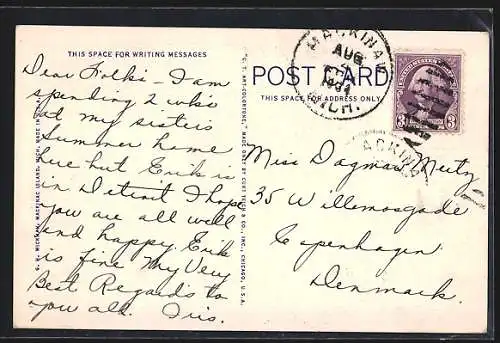 THIS SPACE FOR WRITING MESSAGES
Dear Folks - I am
spending 2 wks
at my sisters
Summer home
here but Erik is
in Detroit I hope
you are all well
and happy. Erik
is fine My Very
Best Regards to
you all. Iris.
G. H. WICKMAN, MACKINAC ISLAND, MICH. MADE IN U.S.A.
"C. T. ART-COLORTONE," MADE ONLY BY CURT TEICH & CO., INC., CHICAGO, U.S.A.
POST CARD
THIS SPACE FOR ADDRESS ONLY
MACKINAW
AUG
1934
MICH.
3 3
MACKINAW
Miss Dagmar Meitz
35 Willemosgade
Copenhagen
Denmark